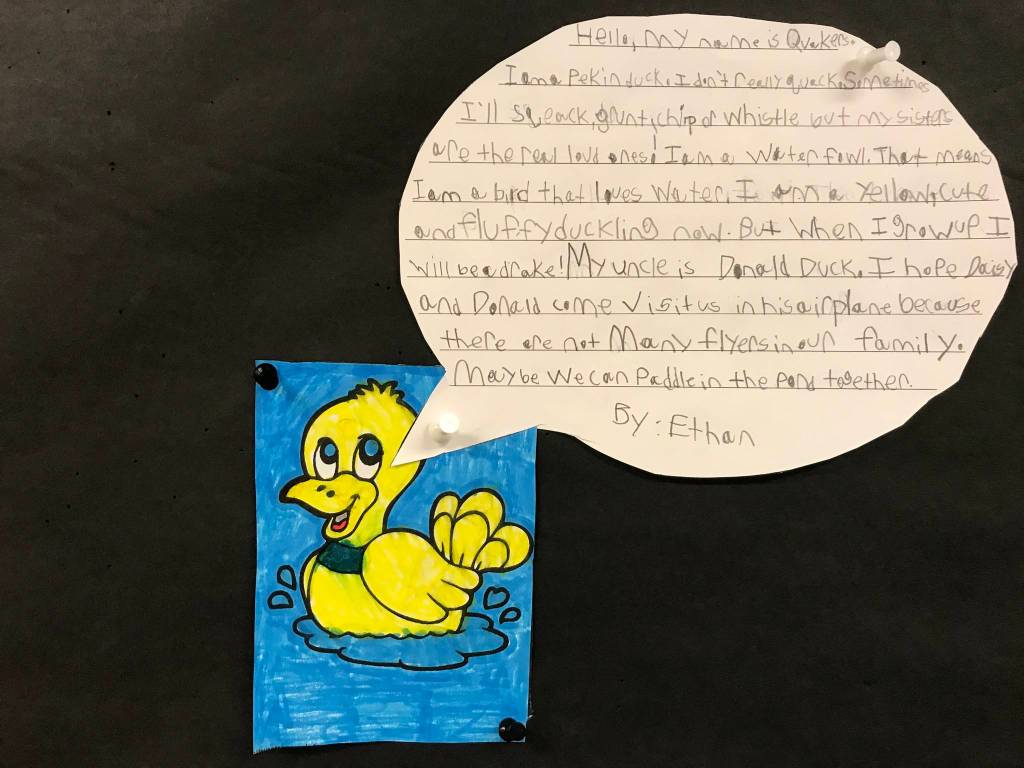 Hello, My name is Quakers.
I am a Pekin duck. I don't really quack. Sometimes
I'll sqeack, grunt, chirp or Whistle but my sisters
are the real loud ones! I am a Water fowl. That means
I am a bird that loves Water. I am a Yellow, cute
and fluffy duckling now. But When I grow up I
will be a drake! My uncle is Donald Duck. I hope Daisy
and Donald come visit us in his airplane because
there are not Many flyers in our family.
Maybe We can Paddle in the Pond together.
By: Ethan